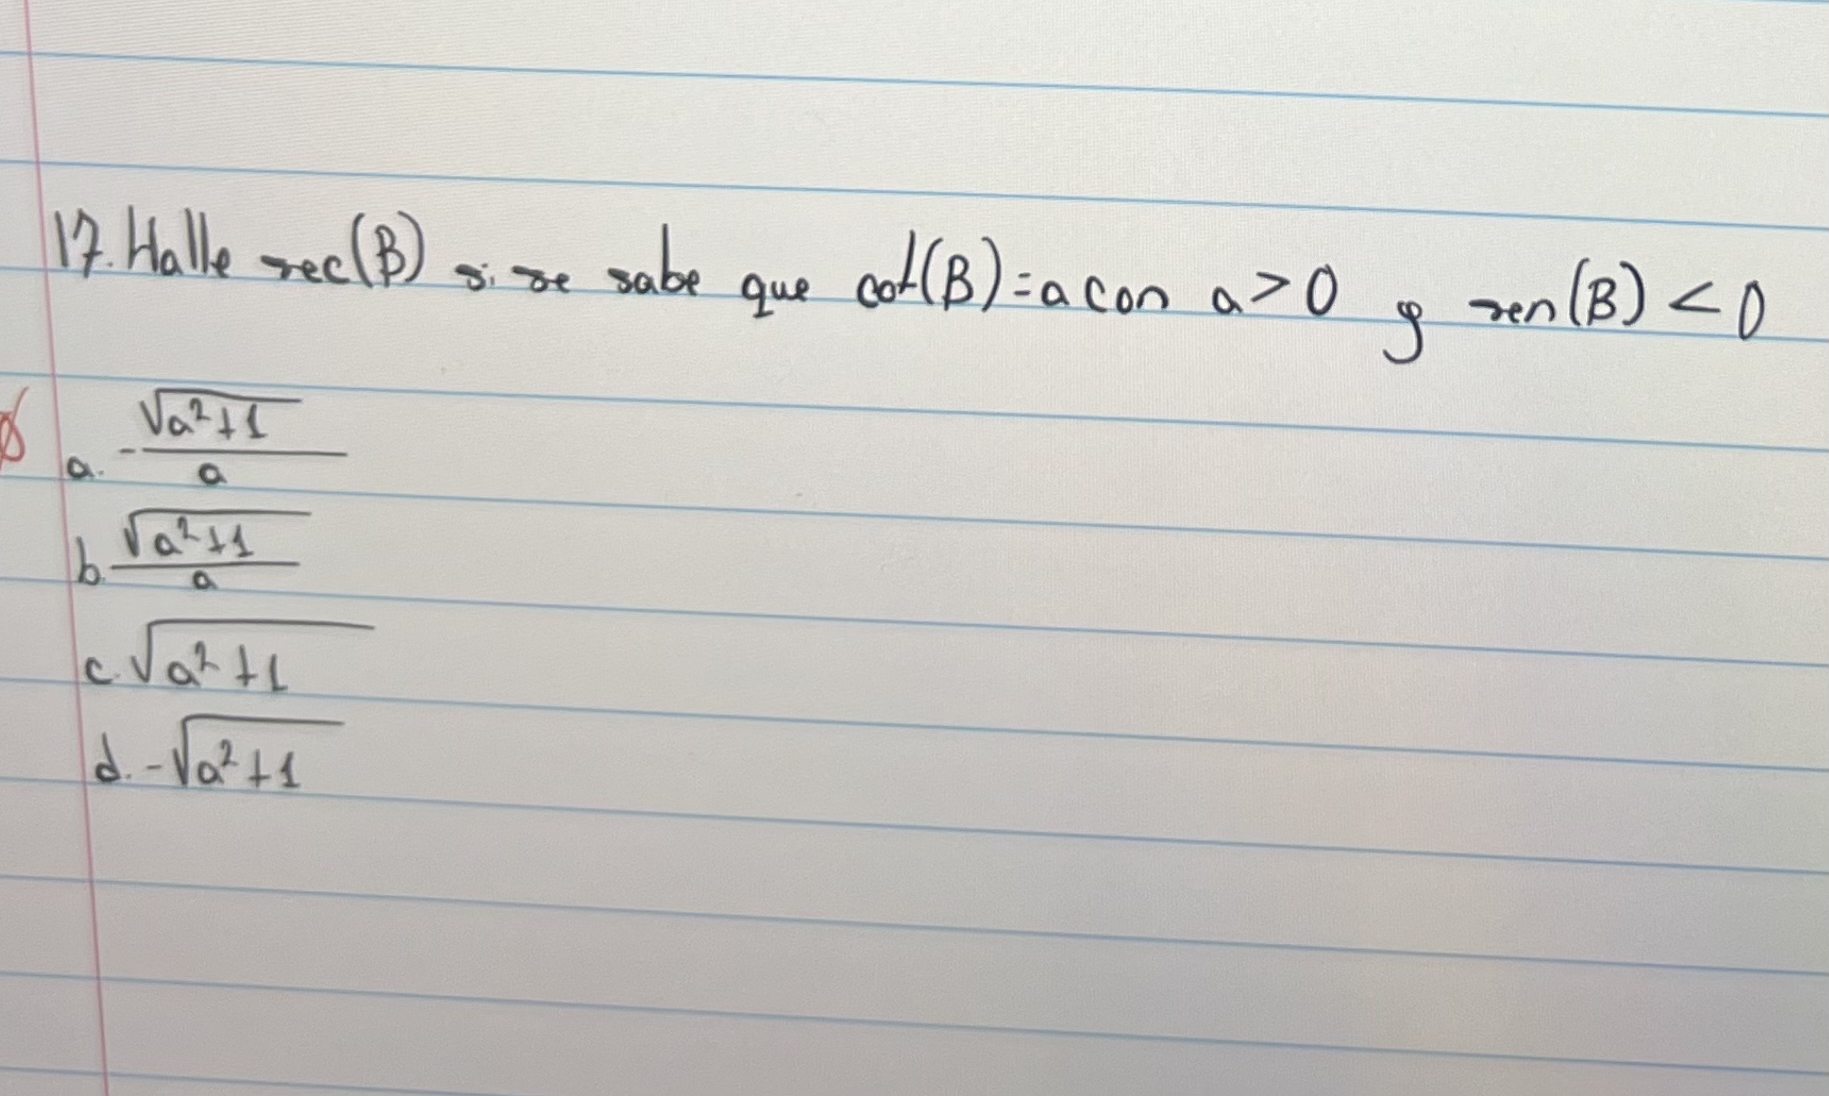 17. Halle sec(B) si se sabe que cot(B)=a con a>0 y sen(B)<0
a. -√(a²+1)/a
b. √(a²+1)/a
c. √(a²+1)
d. -√(a²+1)